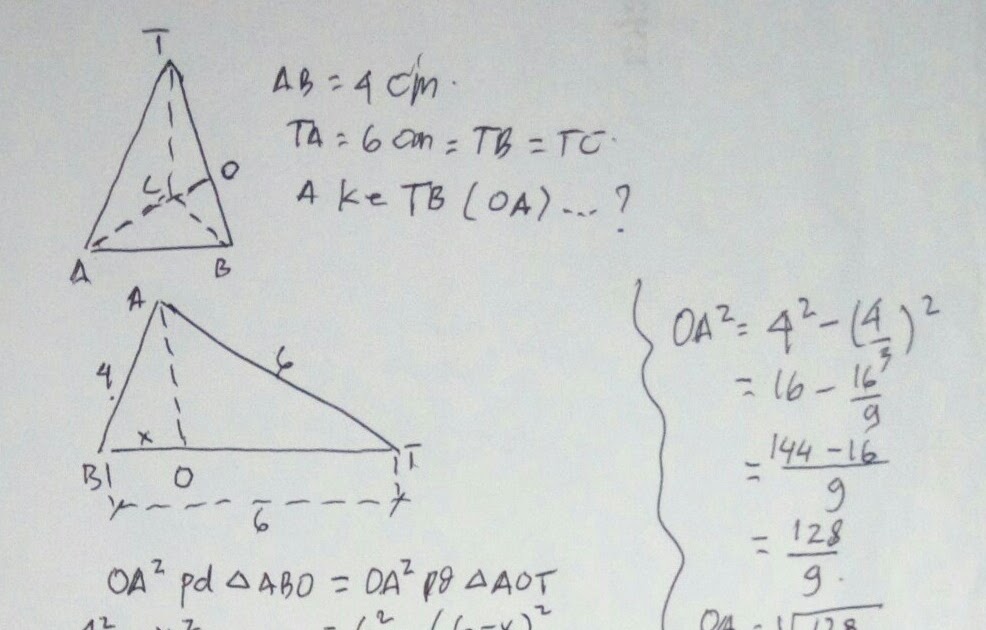 T
AB = 4 cm.
TA = 6 cm = TB = TC.
O
C
A ke TB (OA) ... ?
A
B
A
4
6
x
B
O
T
6
OA² pd △ABO = OA² pd △AOT
OA² = 4² - (4/3)²
= 16 - 16/9
= 144 - 16 / 9
= 128 / 9.